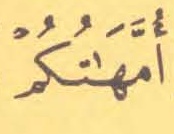 أُمَّهَٰتُكُمْ